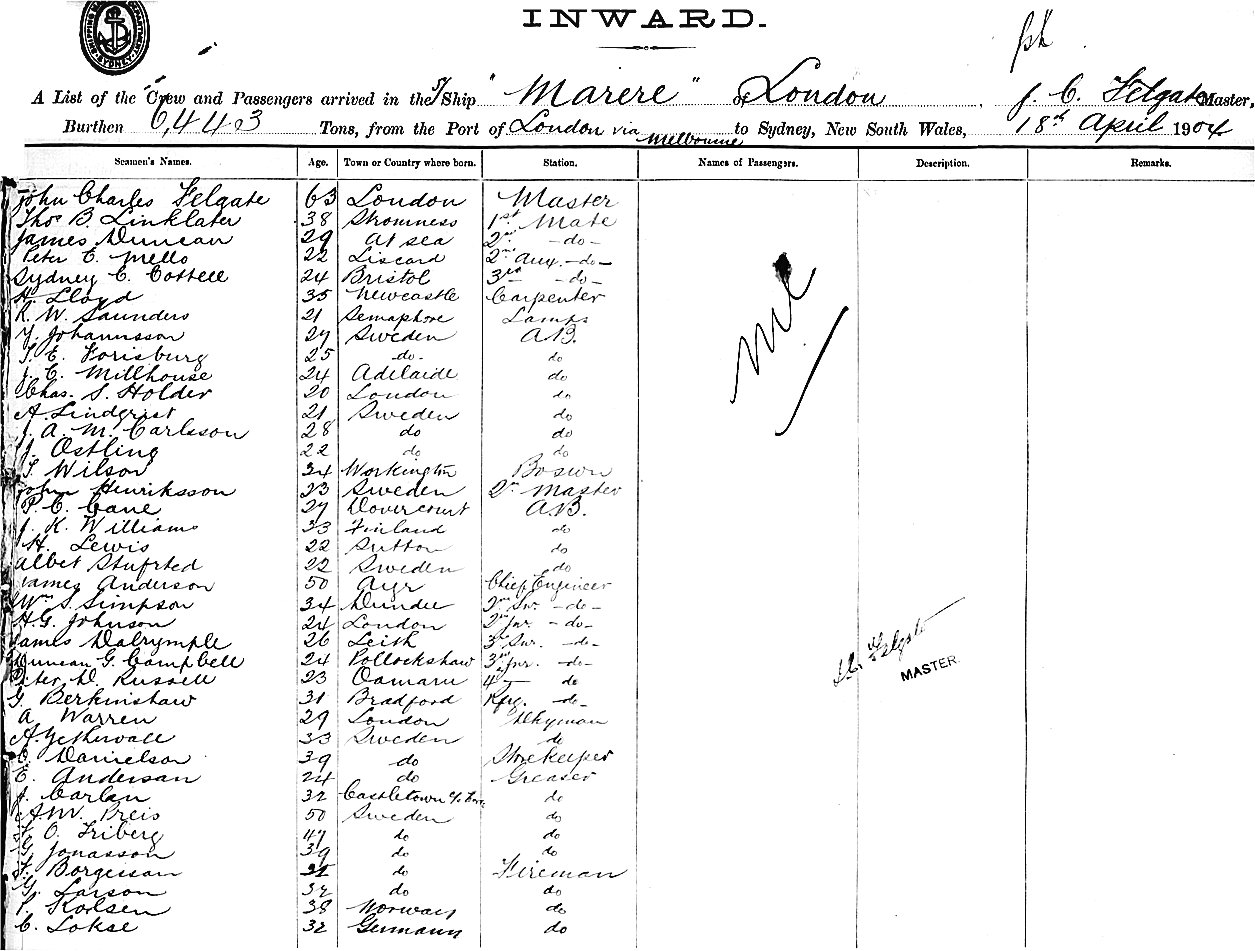 SHIPPING SYDNEY
INWARD.
A List of the Crew and Passengers arrived in the S/Ship "Marere" of London, J. C. Felgate Master,
Burthen 6,443 Tons, from the Port of London via Melbourne to Sydney, New South Wales, 18th April 1904
Seamen's Names. Age. Town or Country where born. Station. Names of Passengers. Description. Remarks.
John Charles Felgate 63 London Master
Thos B. Linklater 38 Stromness 1st Mate
James Duncan 29 At sea 2nd -do-
Peter E. Mello 22 Liscard 2nd Aux. -do-
Sydney C. Cottell 24 Bristol 3rd -do-
H. Lloyd 35 Newcastle Carpenter
R. W. Saunders 21 Semaphore Lamps
Y. Johannsson 27 Sweden A.B.
T. E. Forisburg 25 -do- do
J. E. Millhouse 24 Adelaide do
Chas. S. Holder 20 London do
A. Lindqrist 21 Sweden do
J. A. M. Carlsson 28 do do
J. Ostling 22 do do
T. Wilson 34 Workington Boswn
John Henriksson 23 Sweden 2nd Master
P. C. Cane 27 Dovercourt A.B.
J. K. Williams 33 Finland do
H. Lewis 22 Sutton do
Albet Stufsted 22 Sweden do
James Anderson 50 Ayr Chief Engineer
Wm S. Simpson 34 Dundee 2nd Snr. -do-
H. G. Johnson 24 London 2nd Jnr. -do-
James Dalrymple 26 Leith 3rd Snr. -do-
Duncan G. Campbell 24 Pollockshaw 3rd Jnr. -do-
Peter D. Russell 23 Oamaru 4th do
G. Berkinshaw 31 Bradford Rfrg. -do-
A Warren 29 London Dkyman
A. Zethervall 33 Sweden do
C. Danielson 39 do Storekeeper
E. Andersan 24 do Greaser
J. Carlan 32 Castletown do
A. W. Preis 50 Sweden do
O. Friberg 47 do do
Jonasson 39 do do
F. Borgessan do Fireman
G. Larson 32 do do
P. Karlsen 38 Norway do
C. Lokse 32 Germann do
Nil
Felgate
MASTER.